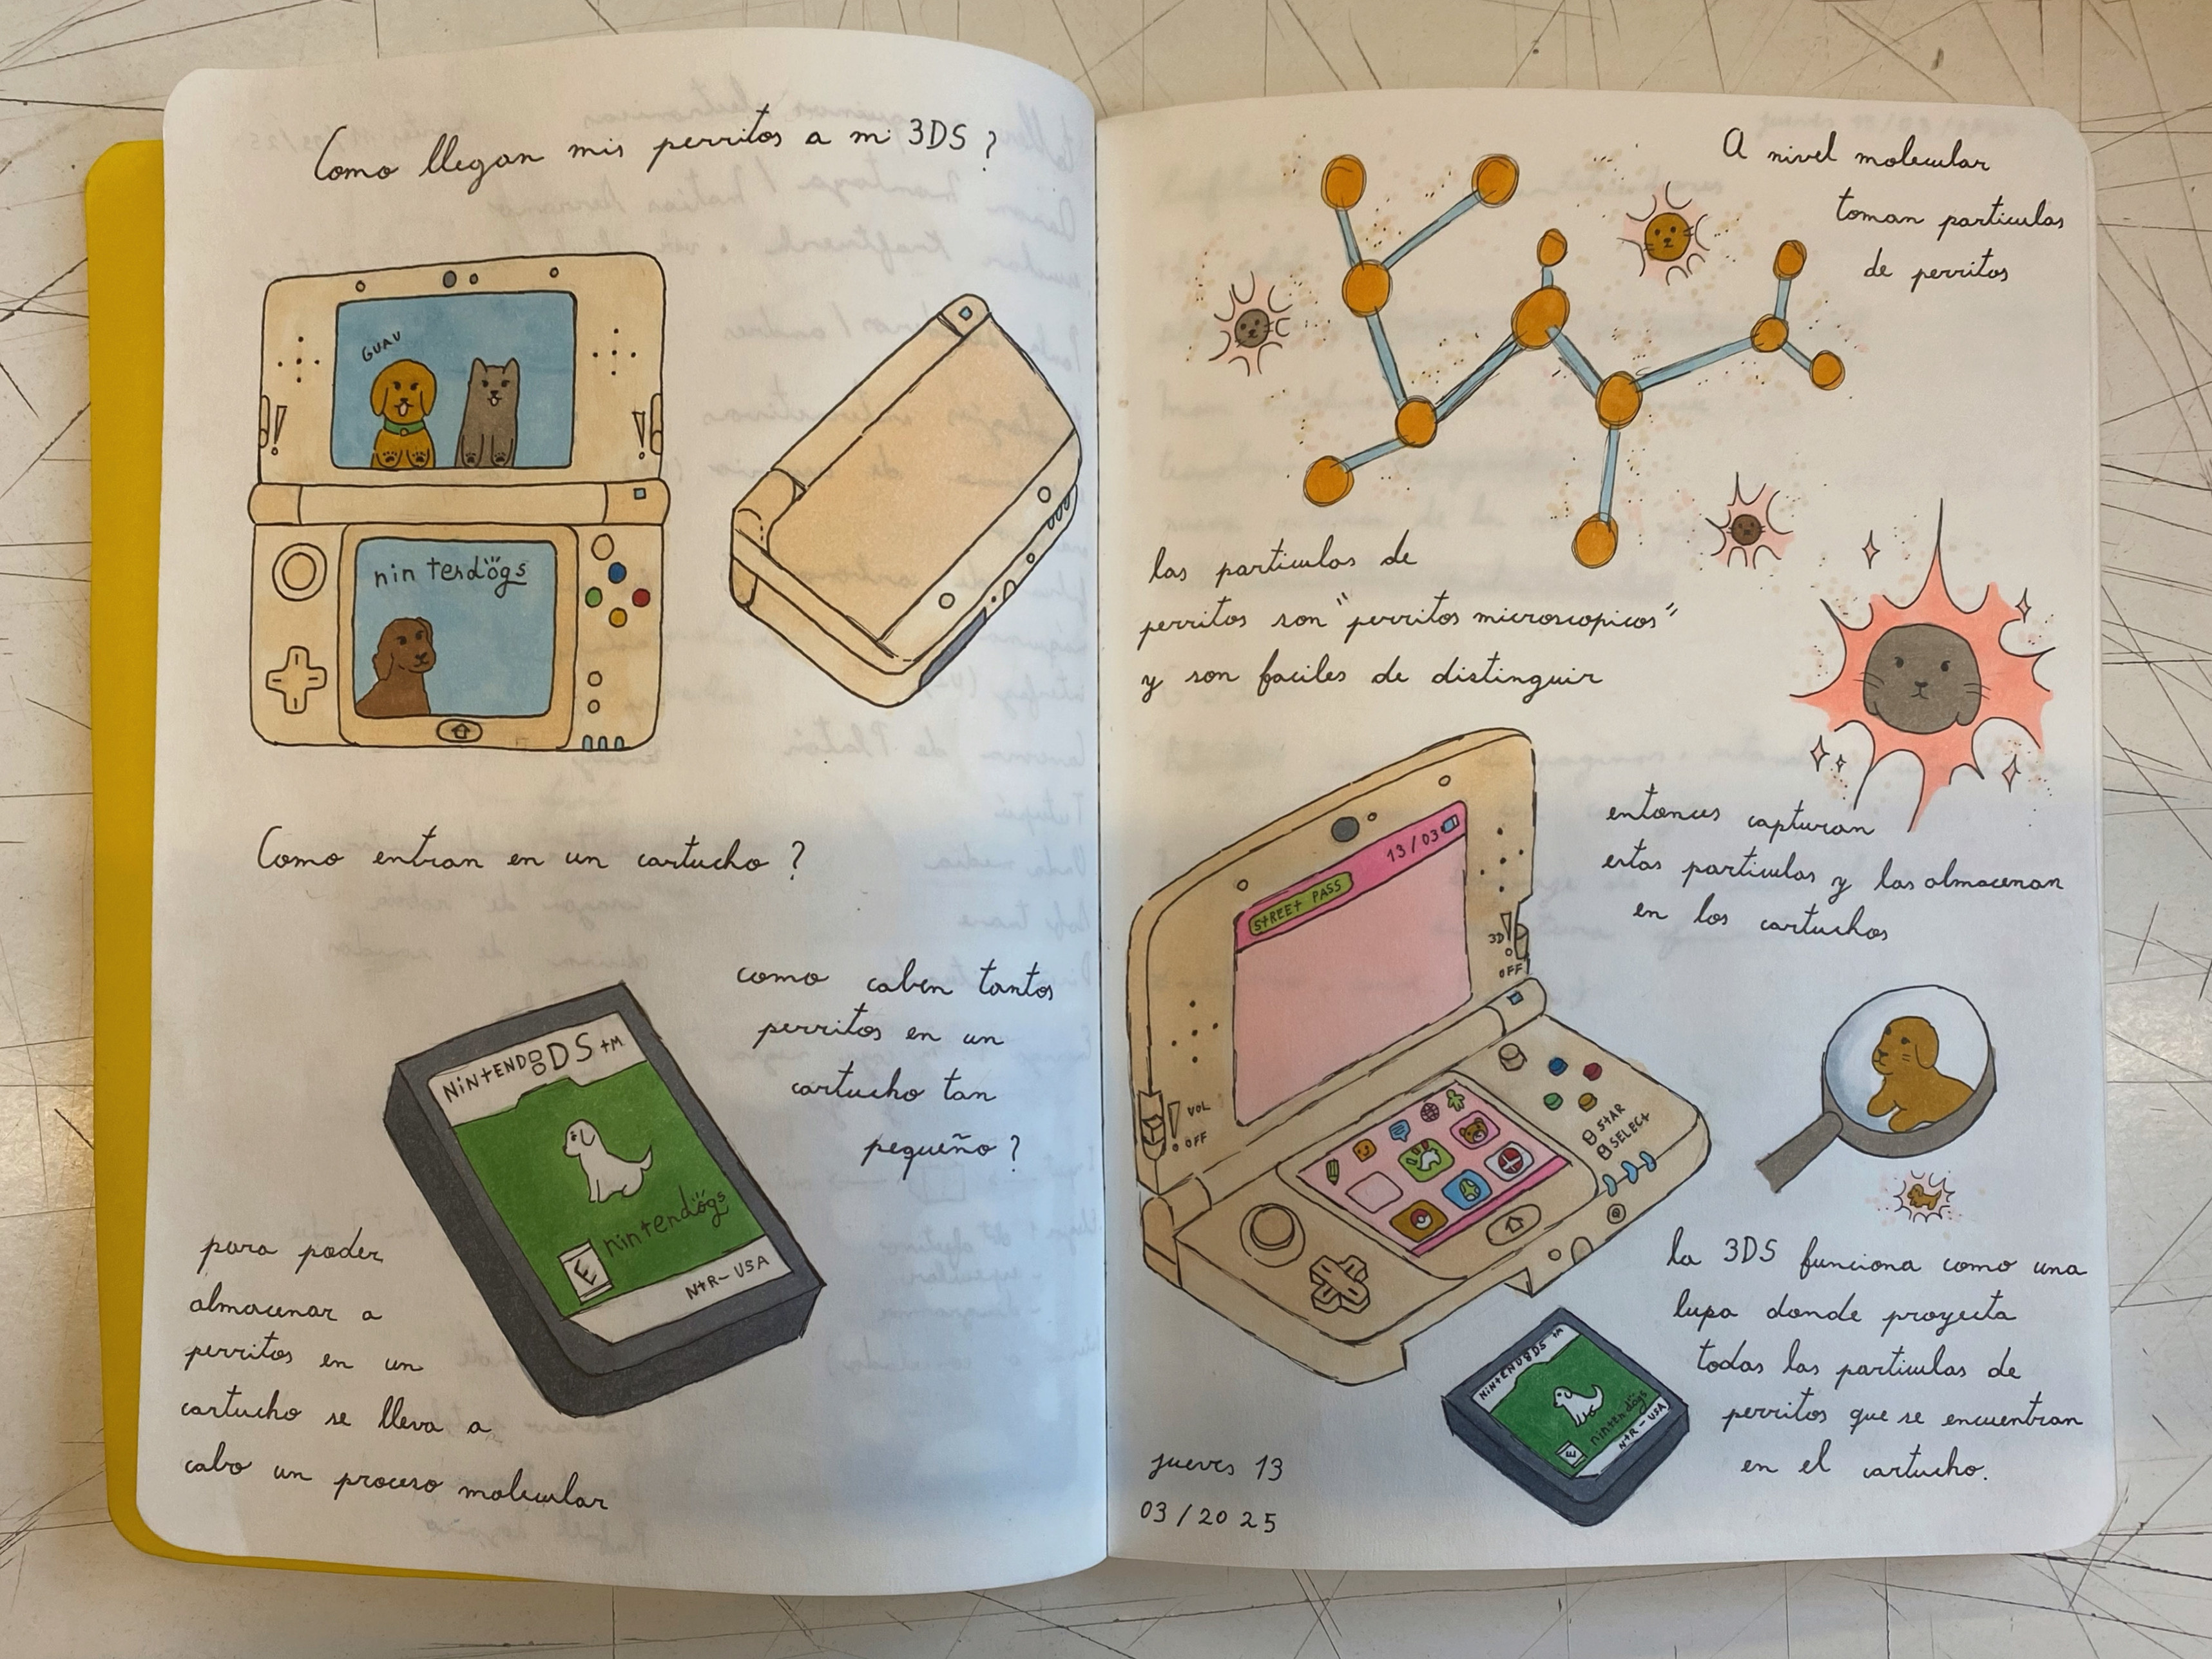 Como llegan mis perritos a mi 3DS ?
GUAU
nintendogs
Como entran en un cartucho ?
como caben tantos
perritos en un
cartucho tan
pequeño ?
NINTENDO DS TM
nintendogs
E
NTR-USA
para poder
almacenar a
perritos en un
cartucho se lleva a
cabo un proceso molecular
A nivel molecular
toman particulas
de perritos
las particulas de
perritos son "perritos microscopicos"
y son faciles de distinguir
entonces capturan
estas particulas y las almacenan
en los cartuchos
STREET PASS
13/03
3D
OFF
VOL
OFF
STAR
SELECT
la 3DS funciona como una
lupa donde proyecta
todas las particulas de
perritos que se encuentran
en el cartucho.
NINTENDO DS TM
nintendogs
E
NTR-USA
jueves 13
03/2025